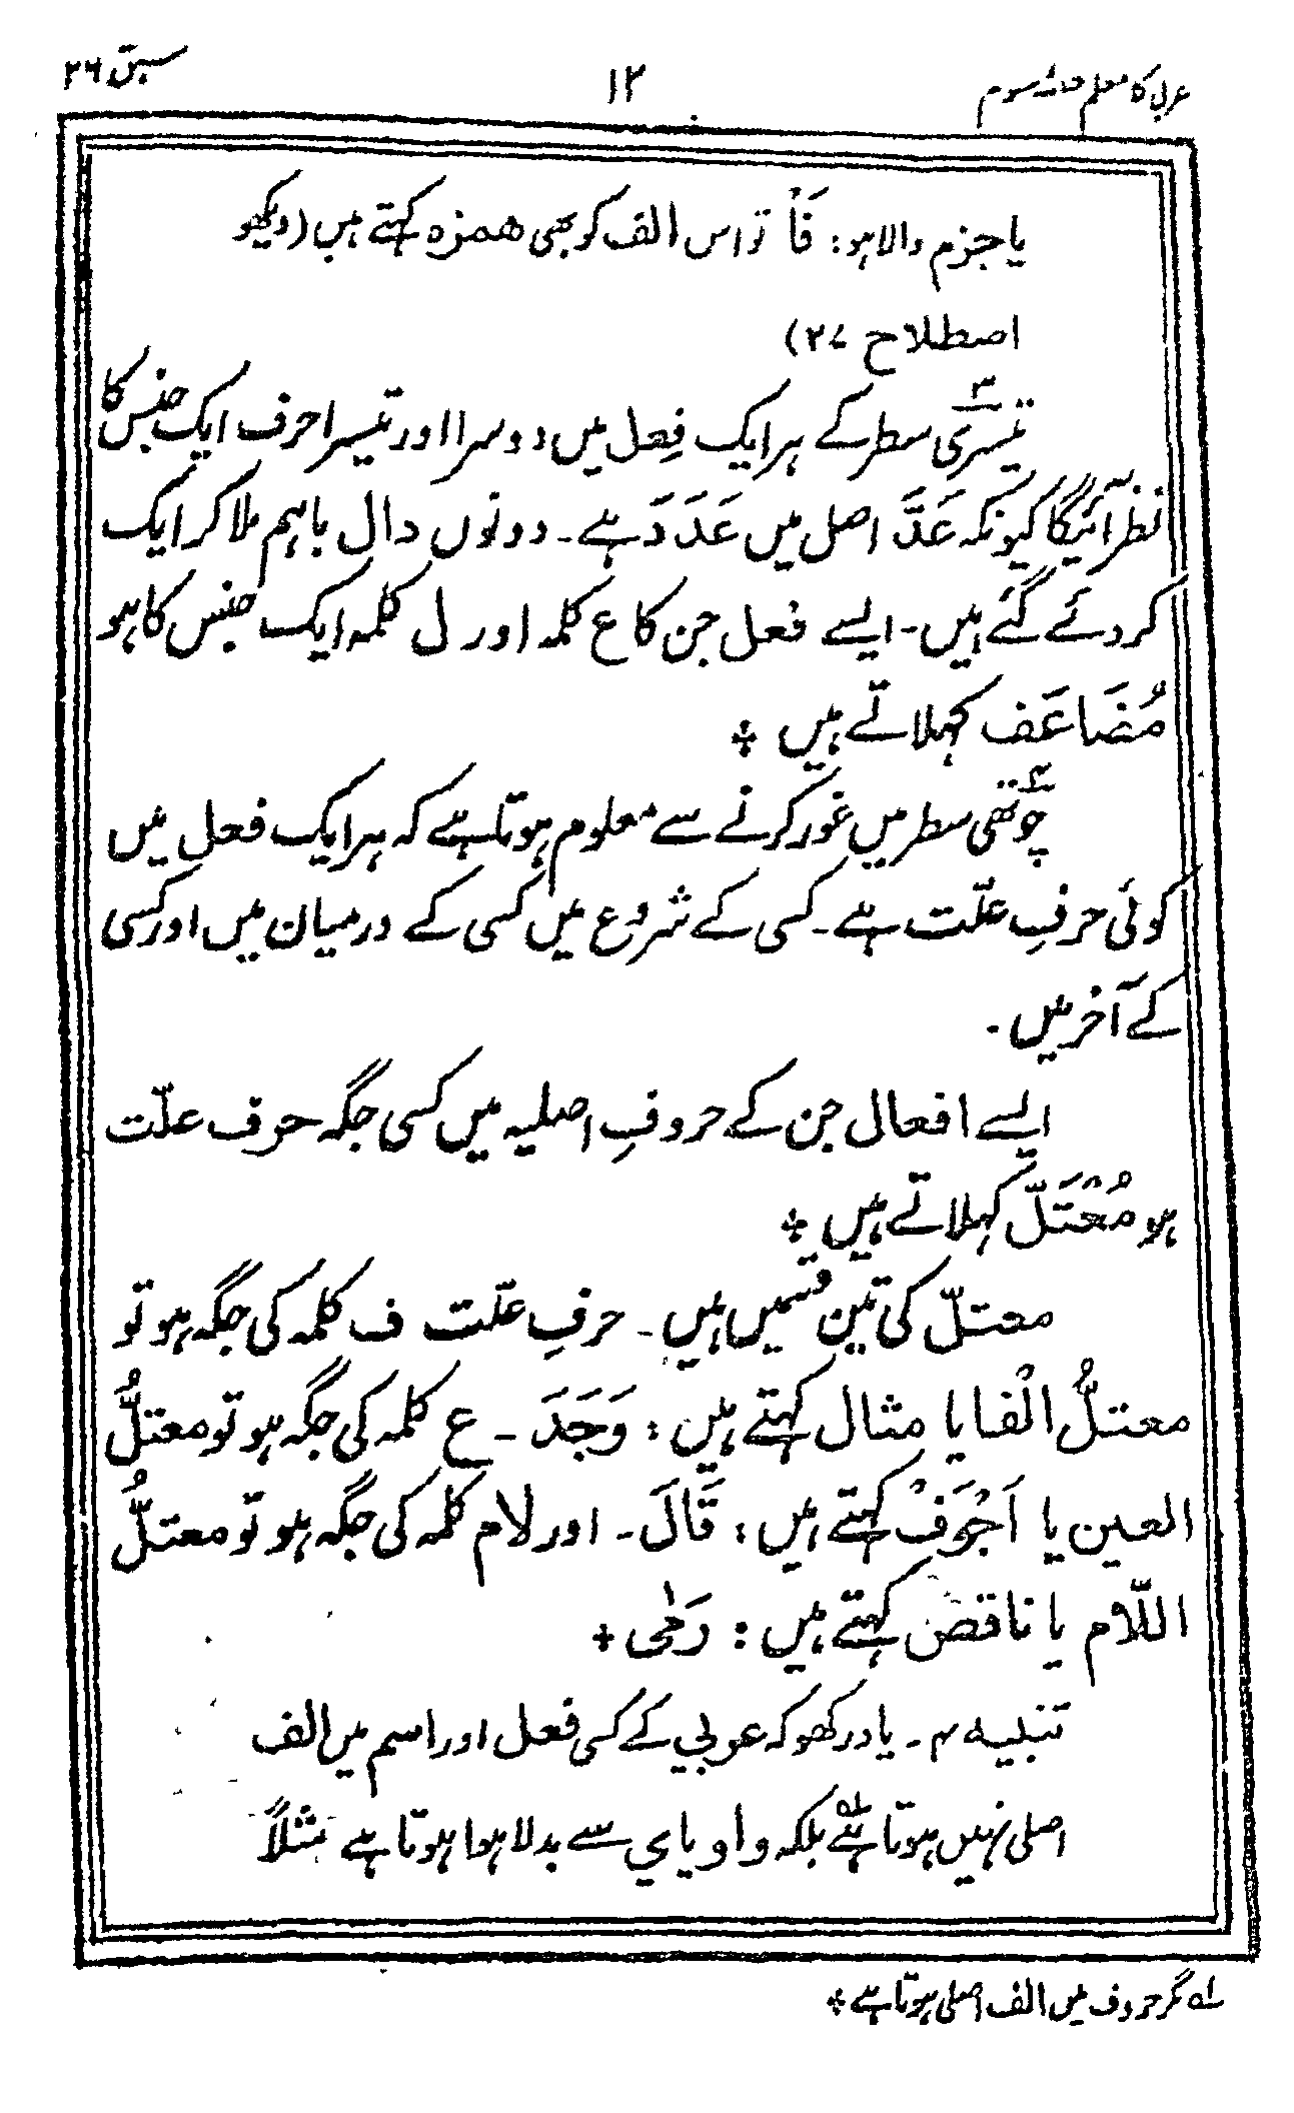 عربی کا معلم حصہ سوم ۱۲ سبق ۲۶
یا جزم والا ہو: فَأْ تو اس الف کو بھی همزہ کہتے ہیں (دیکھو
اصطلاح ۲۷)
۳ تیسری سطر کے ہر ایک فِعل میں دوسرا اور تیسرا حرف ایک جنس کا
نظر آئیگا کیونکہ عَدَّ اصل میں عَدَدَ ہے۔ دونوں دال باہم ملا کر ایک
کر دئے گئے ہیں۔ ایسے فعل جن کا ع کلمہ اور ل کلمہ ایک جنس کا ہو
مُضَاعَف کہلاتے ہیں ÷
۴ چوتھی سطر میں غور کرنے سے معلوم ہوتا ہے کہ ہر ایک فعل میں
کوئی حرفِ علّت ہے۔ کسی کے شروع میں کسی کے درمیان میں اور کسی
کے آخر میں ۔
ایسے افعال جن کے حروفِ اصلیہ میں کسی جگہ حرف علّت
ہو مُعْتَلّ کہلاتے ہیں ÷
معتلّ کی تین قسمیں ہیں۔ حرفِ علّت ف کلمہ کی جگہ ہو تو
معتلُّ الْفا یا مثال کہتے ہیں: وَجَدَ ۔ ع کلمہ کی جگہ ہو تو معتلُّ
العین یا اَجْوَفْ کہتے ہیں: قَالَ ۔ اور لام کلمہ کی جگہ ہو تو معتلُّ
اللّام یا ناقص کہتے ہیں: رَمٰی ÷
تنبیہ ۴ ۔ یاد رکھو کہ عربی کے کسی فعل اور اسم میں الف
اصلی نہیں ہوتا ہے۱ؔ بلکہ واو یا ي سے بدلا ہوا ہوتا ہے مثلاً
۱ؔ مگر حروف میں الف اصلی ہوتا ہے ÷